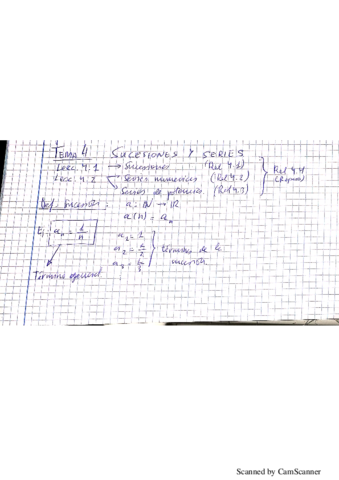 TEMA 4 SUCESIONES Y SERIES
Lecc. 4.1 → Sucesiones (Rel 4.1)
Lecc. 4.2 → Series numéricas (Rel 4.2) } Rel 4.4
↘ Series de potencias (Rel 4.3) (Repaso)
Def. Sucesión: a: ℕ → ℝ
a(n) = aₙ
Ej: aₙ = 1/n
a₁ = 1
a₂ = 1/2 } términos de la
a₃ = 1/3 sucesión
Término general
Scanned by CamScanner